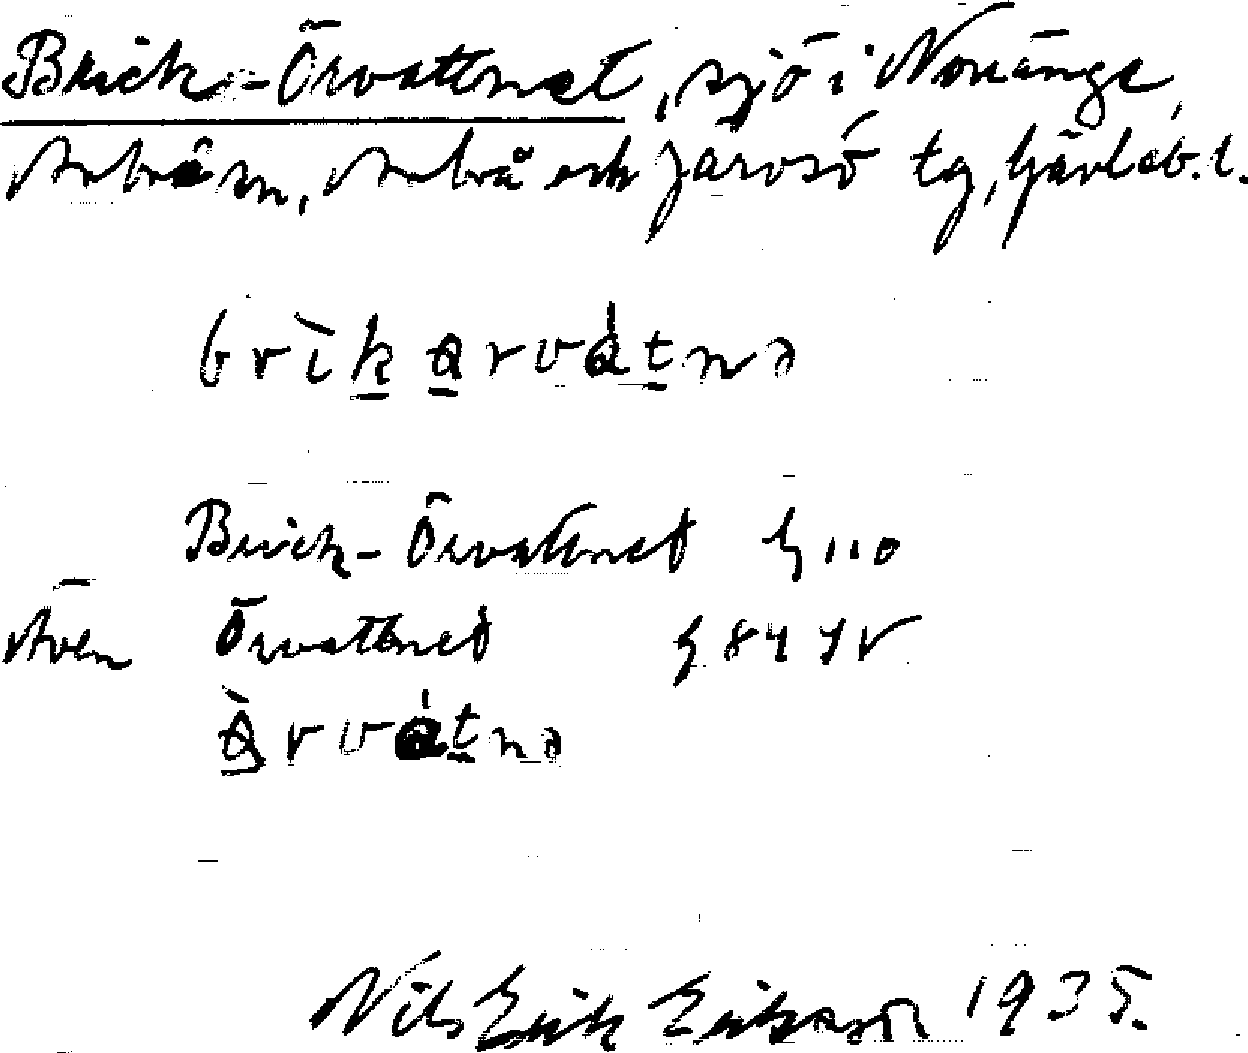 Brick-Örvattnet, sjö i Norränge,
Arbrå sn, Arbrå och Järvsö tg, Gävleb. l.
Brick-Örvattnet G 110
Även Örvattnet G 84 SV
Nils Erik Eriksson 1935.